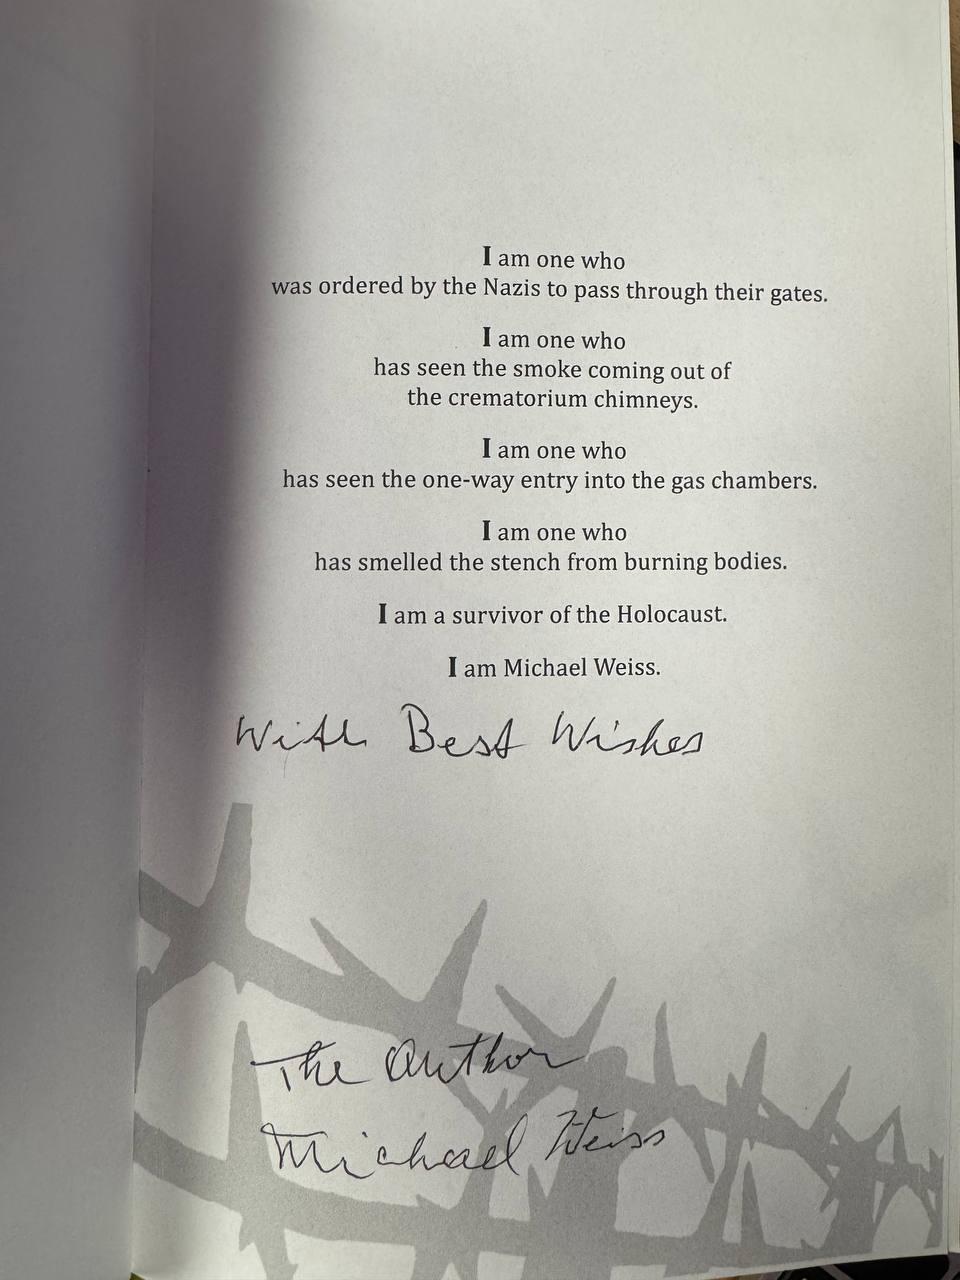 I am one who
was ordered by the Nazis to pass through their gates.
I am one who
has seen the smoke coming out of
the crematorium chimneys.
I am one who
has seen the one-way entry into the gas chambers.
I am one who
has smelled the stench from burning bodies.
I am a survivor of the Holocaust.
I am Michael Weiss.
With Best Wishes
The Author
Michael Weiss